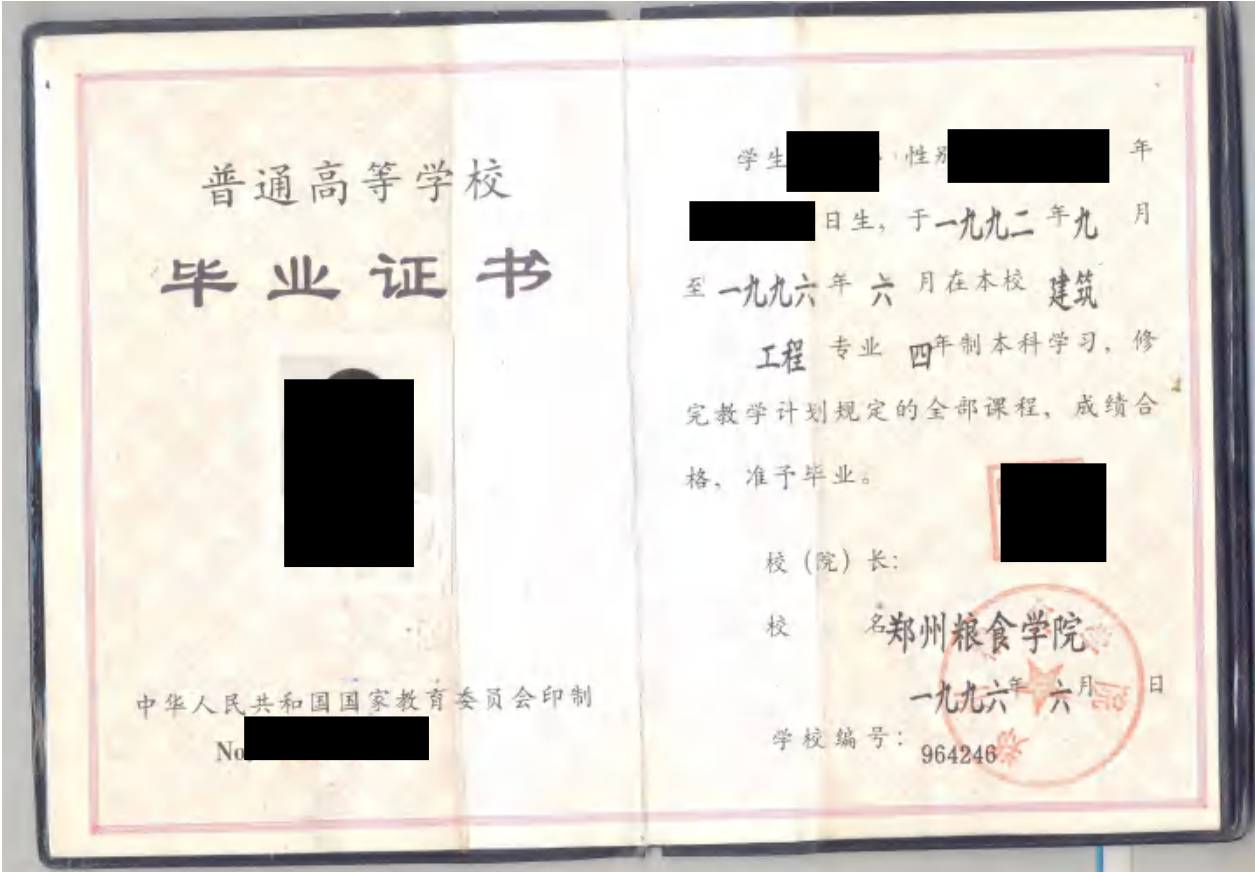 普通高等学校
毕业证书
中华人民共和国国家教育委员会印制
No
学生 性别 年
日生，于一九九二年九月
至一九九六年六月在本校建筑
工程专业四年制本科学习，修
完教学计划规定的全部课程，成绩合
格，准予毕业。
校（院）长：
校名郑州粮食学院
一九九六年六月 日
学校编号：964246